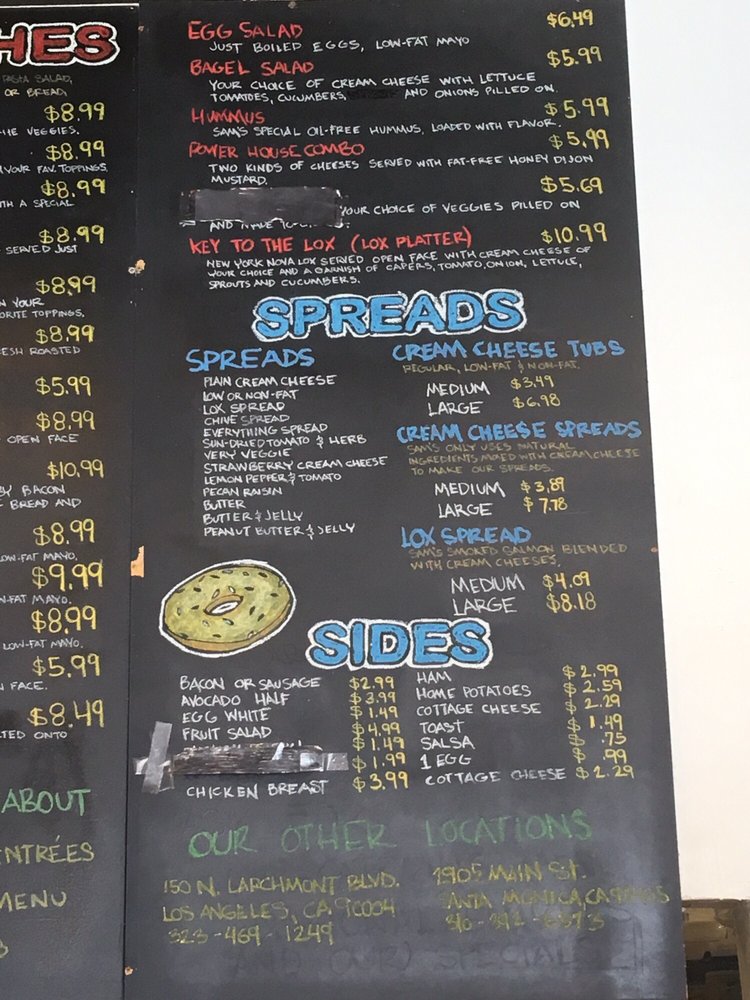 HES
PASTA SALAD,
OR BREAD,
$8.99
THE VEGGIES.
$8.99
YOUR FAV. TOPPINGS.
$8.99
TH A SPECIAL
$8.99
SERVED JUST
$8.99
N YOUR
ORITE TOPPINGS.
$8.99
ESH ROASTED
$5.99
$8.99
OPEN FACE
$10.99
BY BACON
BREAD AND
$8.99
LOW-FAT MAYO.
$9.99
N-FAT MAYO.
$8.99
LOW-FAT MAYO.
$5.99
N FACE.
$8.49
TED ONTO
ABOUT
NTRÉES
MENU
EGG SALAD $6.49
JUST BOILED EGGS, LOW-FAT MAYO
BAGEL SALAD $5.99
YOUR CHOICE OF CREAM CHEESE WITH LETTUCE
TOMATOES, CUCUMBERS, AND ONIONS PILLED ON.
HUMMUS $5.99
SAM'S SPECIAL OIL-FREE HUMMUS, LOADED WITH FLAVOR.
POWER HOUSE COMBO $5.99
TWO KINDS OF CHEESES SERVED WITH FAT-FREE HONEY DIJON
MUSTARD.
$5.69
YOUR CHOICE OF VEGGIES PILLED ON
AND MADE
KEY TO THE LOX (LOX PLATTER) $10.99
NEW YORK NOVA LOX SERVED OPEN FACE WITH CREAM CHEESE OF
YOUR CHOICE AND A GARNISH OF CAPERS, TOMATO, ONION, LETTUCE,
SPROUTS AND CUCUMBERS.
SPREADS
SPREADS
PLAIN CREAM CHEESE
LOW OR NON-FAT
LOX SPREAD
CHIVE SPREAD
EVERYTHING SPREAD
SUN-DRIED TOMATO & HERB
VERY VEGGIE
STRAWBERRY CREAM CHEESE
LEMON PEPPER & TOMATO
PECAN RAISIN
BUTTER
BUTTER & JELLY
PEANUT BUTTER & JELLY
CREAM CHEESE TUBS
REGULAR, LOW-FAT & NON-FAT.
MEDIUM $3.49
LARGE $6.98
CREAM CHEESE SPREADS
SAM'S ONLY USES NATURAL
INGREDIENTS MIXED WITH CREAM CHEESE
TO MAKE OUR SPREADS.
MEDIUM $3.89
LARGE $7.78
LOX SPREAD
SAM'S SMOKED SALMON BLENDED
WITH CREAM CHEESES.
MEDIUM $4.09
LARGE $8.18
SIDES
BACON OR SAUSAGE $2.99
AVOCADO HALF $3.99
EGG WHITE $1.49
FRUIT SALAD $4.99
$1.49
$1.99
CHICKEN BREAST $3.99
HAM $2.99
HOME POTATOES $2.59
COTTAGE CHEESE $2.29
TOAST $1.49
SALSA $.75
1 EGG $.99
COTTAGE CHEESE $2.29
OUR OTHER LOCATIONS
150 N. LARCHMONT BLVD.
LOS ANGELES, CA. 90004
323-469-1249
1905 MAIN ST.
SANTA MONICA, CA